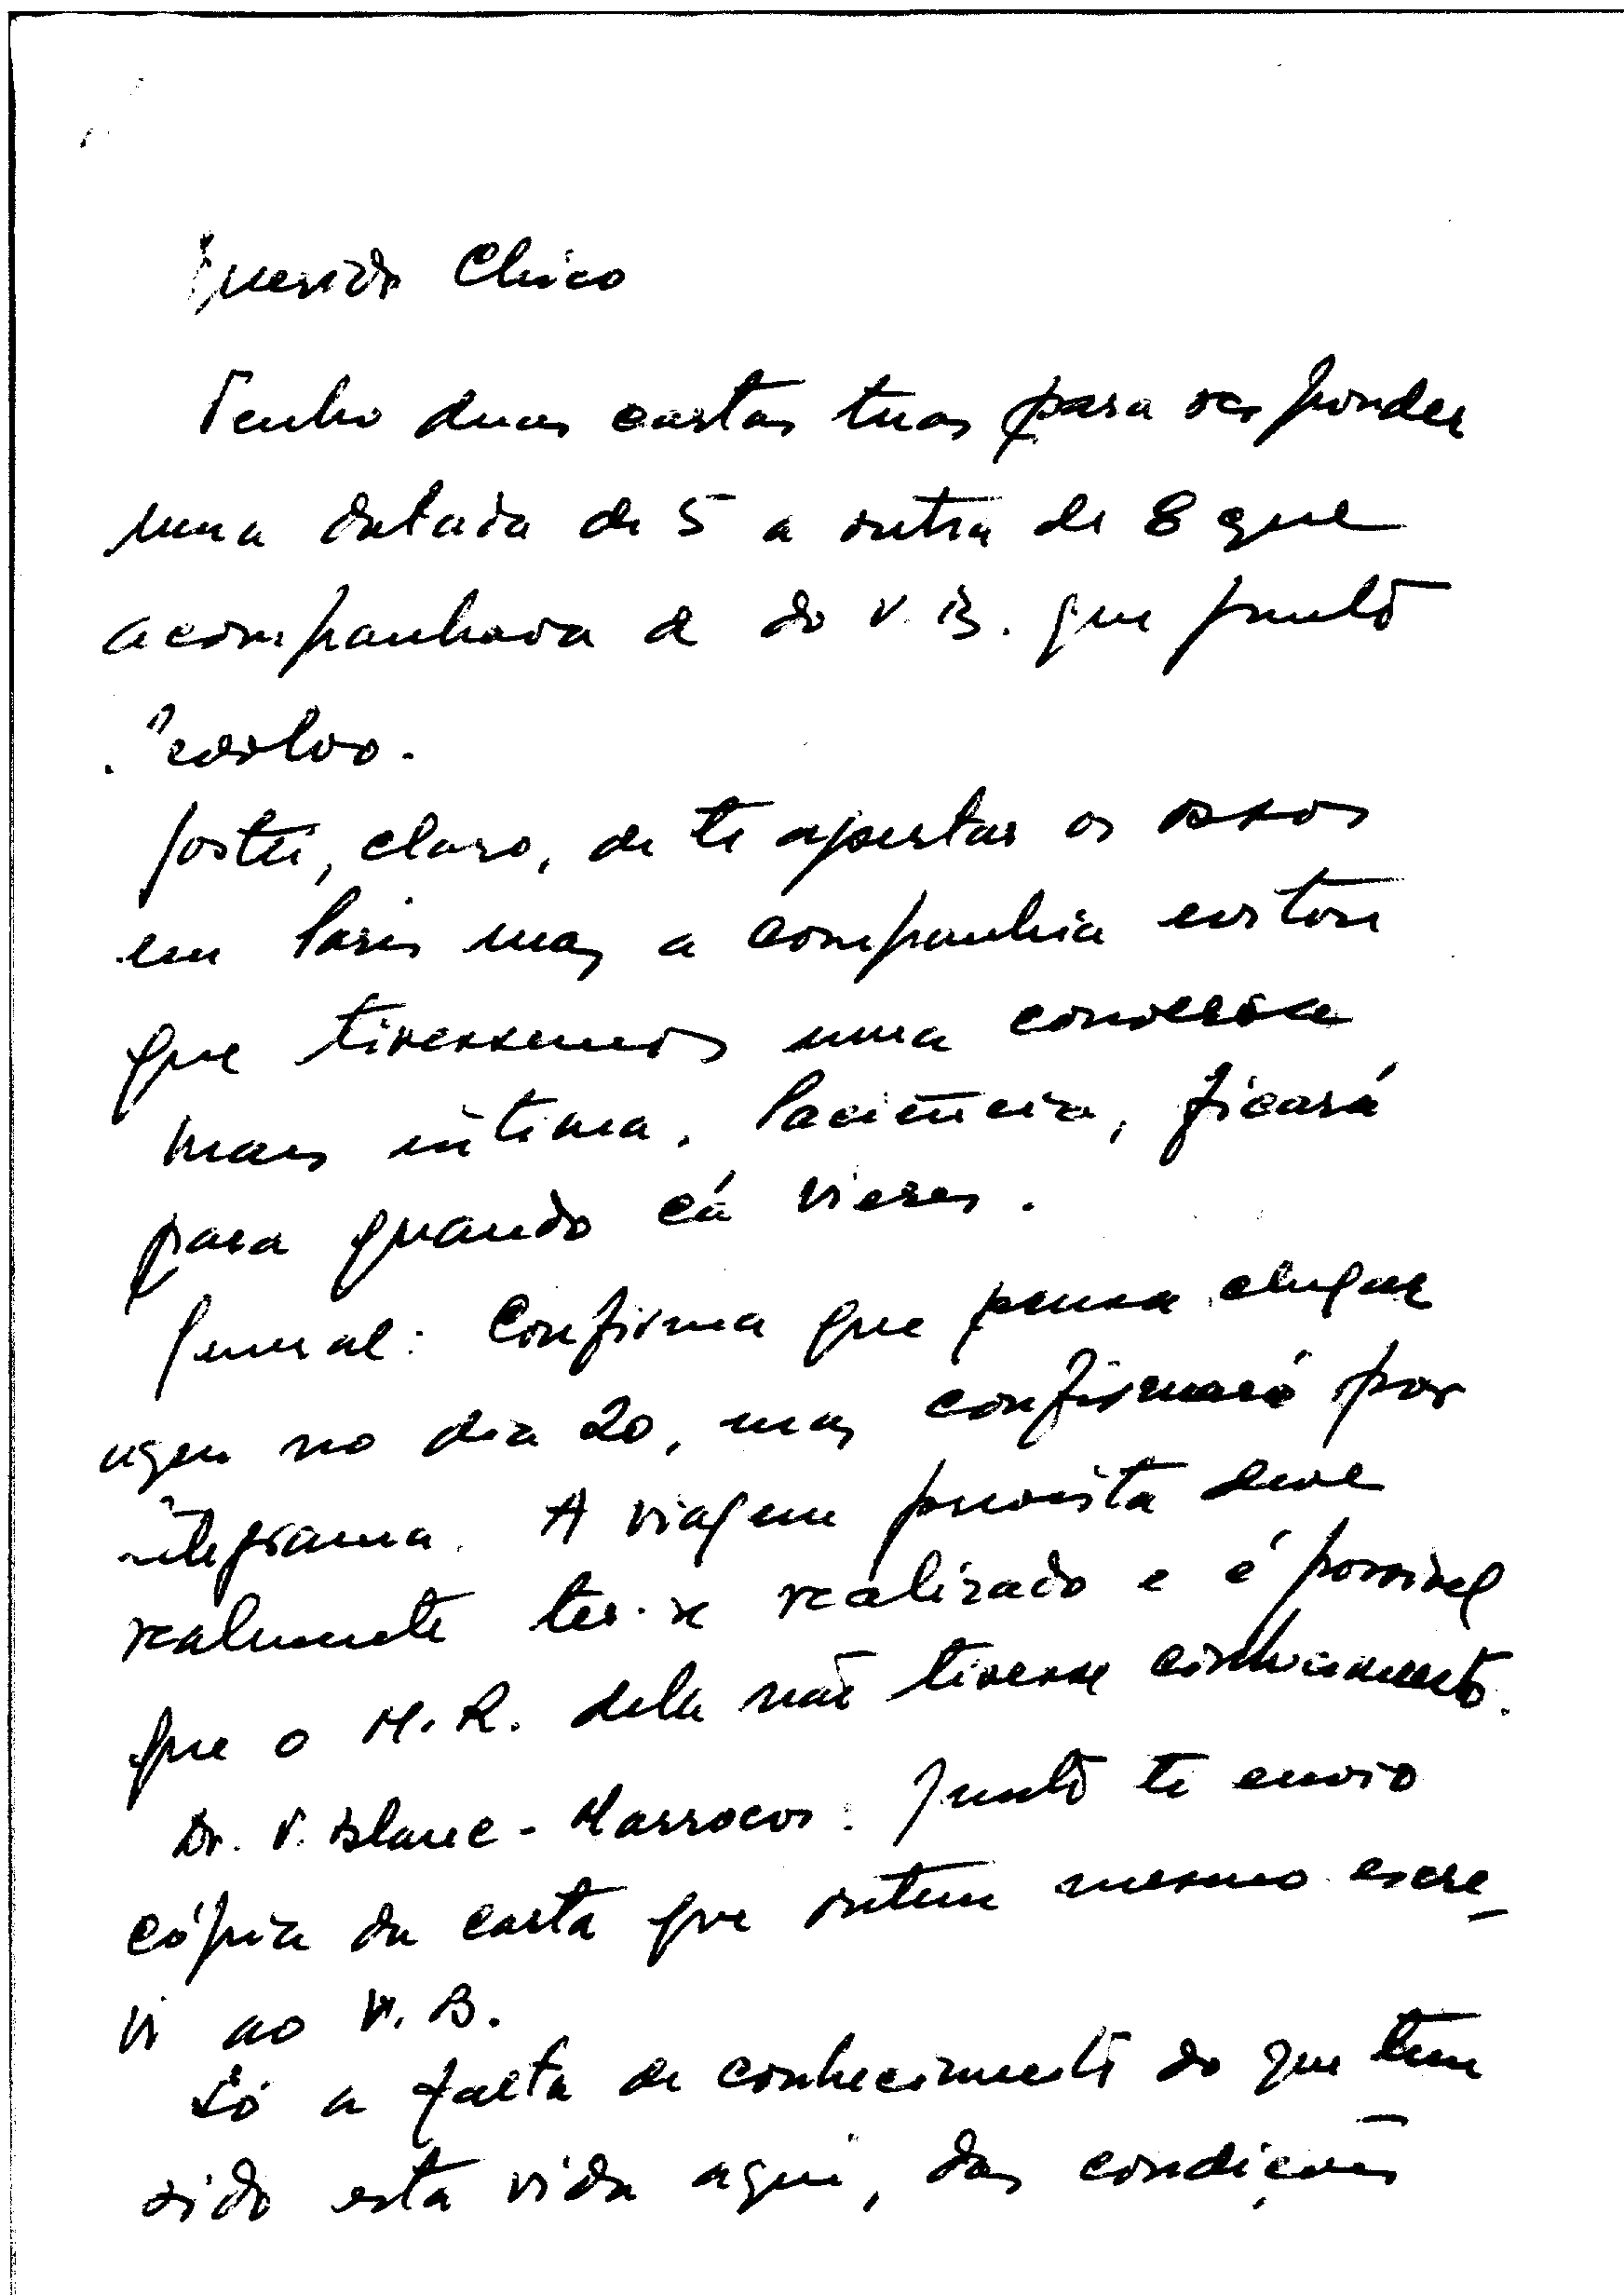 Querido Chico
Tenho duas cartas tuas para responder
uma datada de 5 a outra de 8 que
acompanhava a do V. B. que junto
devolvo.
Gostei, claro, de te apertar os ossos
em Paris mas a companhia evitou
que tivessemos uma conversa
mais intima. Paciência, ficará
para quando cá vieres.
General: Confirma que pensa chegar
aqui no dia 20, mas confirmará por
telegrama. A viagem prevista deve
realmente ter-se realizado e é possivel
que o M. R. dela não tivesse conhecimento.
Dr. V. Blanc - Marrocos: Junto te envio
cópia da carta que ontem mesmo escre-
vi ao V. B.
Só a falta de conhecimento do que tem
sido esta vida aqui, das condições